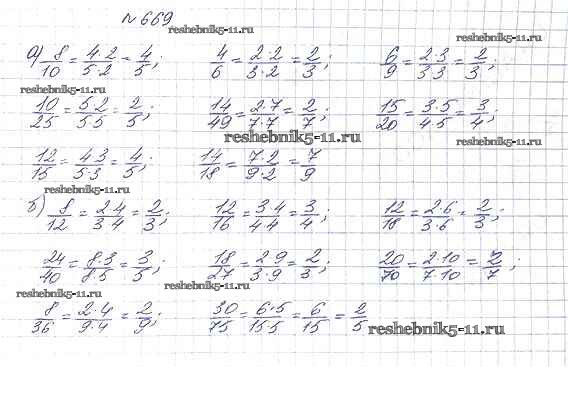 №669
reshebnik5-11.ru
reshebnik5-11.ru
а) 8/10 = 4·2/5·2 = 4/5; 4/6 = 2·2/3·2 = 2/3; 6/9 = 2·3/3·3 = 2/3;
reshebnik5-11.ru
10/25 = 5·2/5·5 = 2/5; 14/49 = 2·7/7·7 = 2/7; 15/20 = 3·5/4·5 = 3/4;
reshebnik5-11.ru
reshebnik5-11.ru
12/15 = 4·3/5·3 = 4/5; 14/18 = 7·2/9·2 = 7/9
reshebnik5-11.ru
б) 8/12 = 2·4/3·4 = 2/3; 12/16 = 3·4/4·4 = 3/4; 12/18 = 2·6/3·6 = 2/3;
24/40 = 8·3/8·5 = 3/5; 18/27 = 2·9/3·9 = 2/3; 20/70 = 2·10/7·10 = 2/7;
reshebnik5-11.ru
reshebnik5-11.ru
8/36 = 2·4/9·4 = 2/9; 30/75 = 6·5/15·5 = 6/15 = 2/5
reshebnik5-11.ru